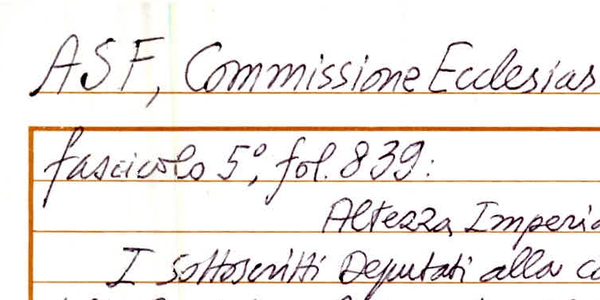 ASF, Commissione Ecclesias
fascicolo 5°, fol. 839:
Altezza Imperia
I sottoscritti Deputati alla co